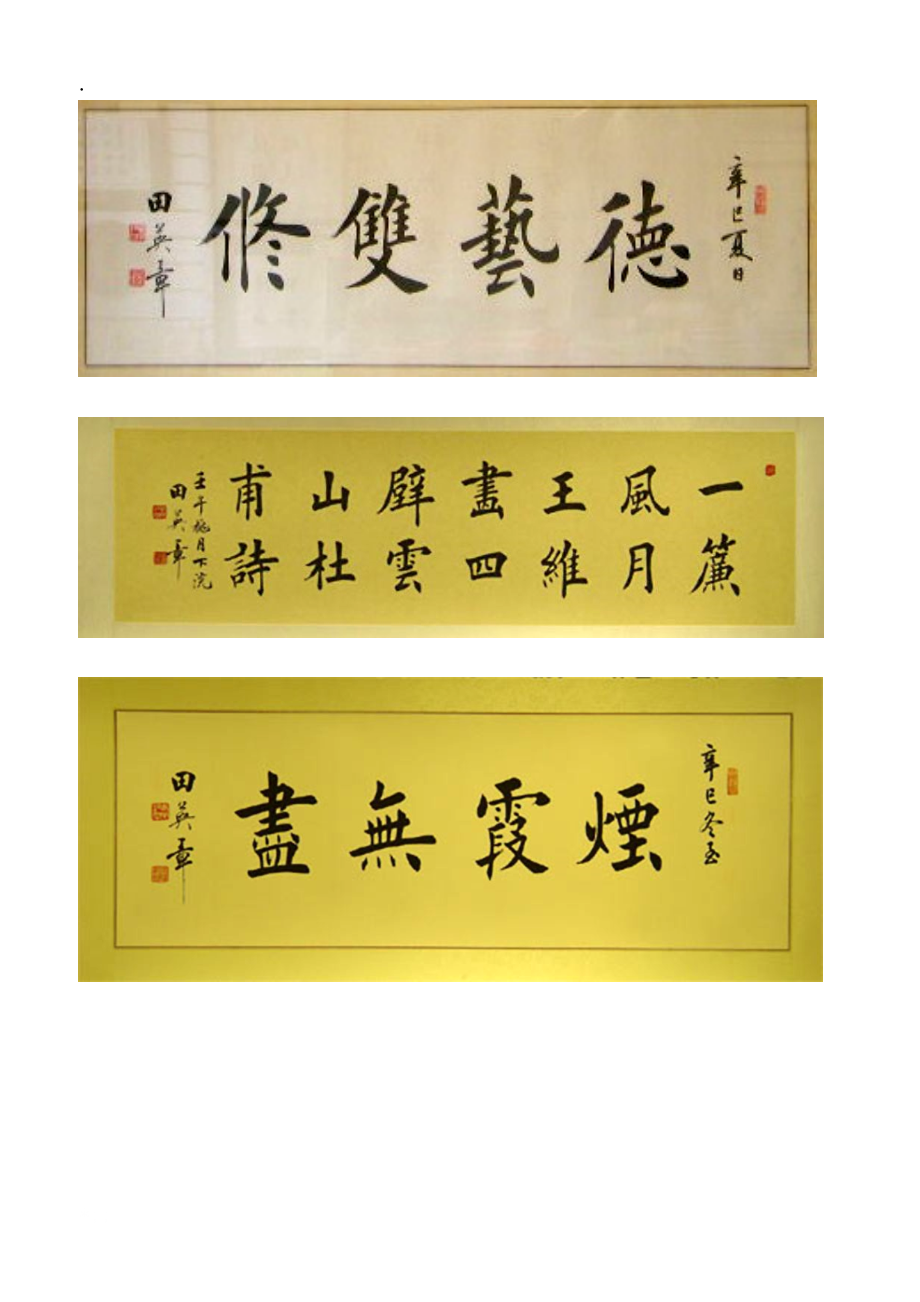 .
辛巳夏日
徳藝雙修
田英章
一簾
風月
王維
畫四
壁雲
山杜
甫詩
壬午桃月下浣
田英章
辛巳冬至
煙霞無盡
田英章